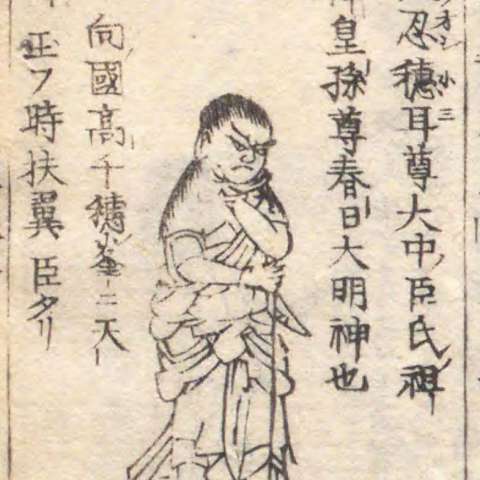 忍穗耳尊大中臣氏祖
皇孫尊春日大明神也
向國高千穗峯ニ天
正フ時扶翼臣タリ